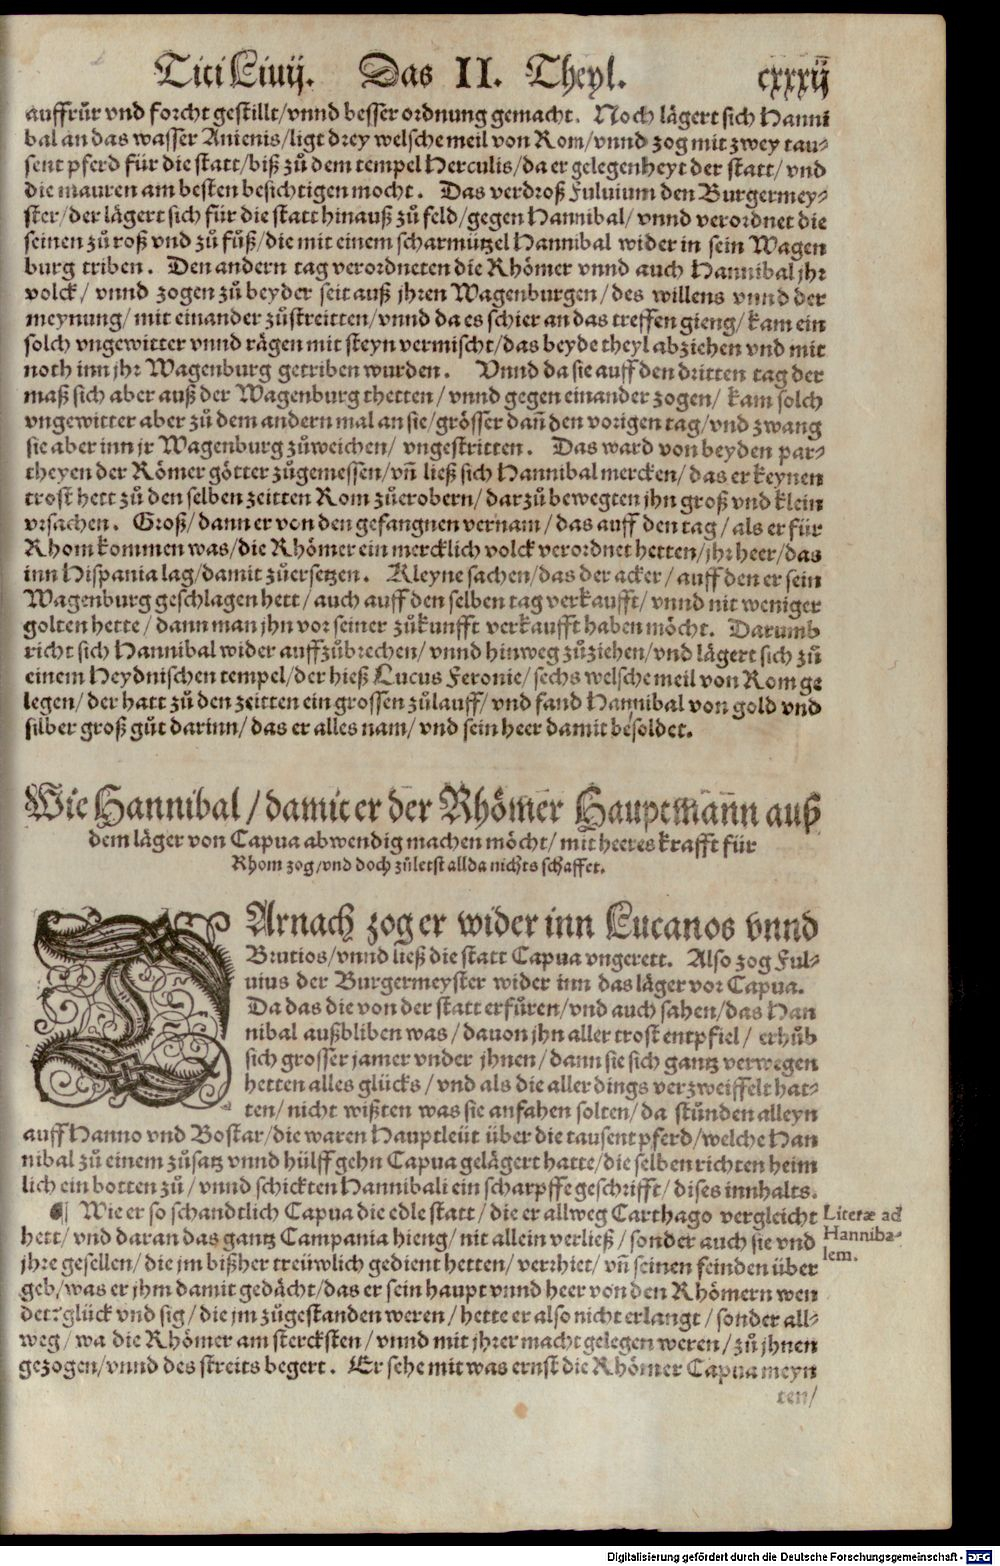 Titi Liuij. Das II. Theyl. cxxxij
auffrůr vnd forcht gestillt/vnnd besser ordnung gemacht. Noch lägert sich Hanni
bal an das wasser Anienis/ligt drey welsche meil von Rom/vnnd zog mit zwey tau⸗
sent pferd für die statt/biß zů dem tempel Herculis/da er gelegenheyt der statt/vnd
die mauren am besten besichtigen mocht. Das verdroß Fuluium den Burgermey⸗
ster/der lägert sich für die statt hinauß zů feld/gegen Hannibal/vnnd verordnet die
seinen zů roß vnd zů fůß/die mit einem scharmützel Hannibal wider in sein Wagen
burg triben. Den andern tag verordneten die Rhömer vnnd auch Hannibal jhr
volck/vnnd zogen zů beyder seit auß jhren Wagenburgen/des willens vnnd der
meynung/mit einander zůstreitten/vnnd da es schier an das treffen gieng/kam ein
solch vngewitter vnnd rägen mit steyn vermischt/das beyde theyl abziehen vnd mit
noth inn jhr Wagenburg getriben wurden. Vnnd da sie auff den dritten tag der
maß sich aber auß der Wagenburg thetten/vnnd gegen einander zogen/kam solch
vngewitter aber zů dem andern mal an sie/grösser dañ den vorigen tag/vnd zwang
sie aber inn jr Wagenburg zůweichen/vngestritten. Das ward von beyden par⸗
theyen der Römer götter zůgemessen/vñ ließ sich Hannibal mercken/das er keynen
trost hett zů den selben zeitten Rom zůerobern/darzů bewegten jhn groß vnd klein
vrsachen. Groß/dann er von den gefangnen vernam/das auff den tag/als er für
Rhom kommen was/die Rhömer ein mercklich volck verordnet hetten/jhr heer/das
inn Hispania lag/damit zůersetzen. Kleyne sachen/das der acker/auff den er sein
Wagenburg geschlagen hett/auch auff den selben tag verkaufft/vnnd nit weniger
golten hette/dann man jhn vor seiner zůkunfft verkaufft haben möcht. Darumb
richt sich Hannibal wider auffzůbrechen/vnnd hinweg zůziehen/vnd lägert sich zů
einem Heydnischen tempel/der hieß Lucus Feronie/sechs welsche meil von Rom ge
legen/der hatt zů den zeitten ein grossen zůlauff/vnd fand Hannibal von gold vnd
silber groß gůt darinn/das er alles nam/vnd sein heer damit besoldet.
Wie Hannibal/damit er der Rhömer Hauptmañn auß
dem läger von Capua abwendig machen möcht/mit heeres krafft für
Rhom zog/vnd doch zůletst allda nichts schaffet.
DArnach zog er wider inn Lucanos vnnd
Brutios/vnnd ließ die statt Capua vngerett. Also zog Ful⸗
uius der Burgermeyster wider inn das läger vor Capua.
Da das die von der statt erfůren/vnd auch sahen/das Han
nibal außbliben was/dauon jhn aller trost entpfiel/erhůb
sich grosser jamer vnder jhnen/dann sie sich gantz verwegen
hetten alles glücks/vnd als die aller dings verzweiffelt hat⸗
ten/nicht wißten was sie anfahen solten/da stůnden alleyn
auff Hanno vnd Bostar/die waren Hauptleüt über die tausent pferd/welche Han
nibal zů einem zůsatz vnnd hülff gehn Capua gelägert hatte/die selben richten heim
lich ein botten zů/vnnd schickten Hannibali ein scharpffe geschrifft/dises innhalts.
¶ Wie er so schandtlich Capua die edle statt/die er allweg Carthago vergleicht
hett/vnd daran das gantz Campania hieng/nit allein verließ/sonder auch sie vnd
jhre gesellen/die jm bißher treüwlich gedient hetten/verrhiet/vñ seinen feinden über
geb/was er jhm damit gedächt/das er sein haupt vnnd heer von den Rhömern wen
det: glück vnd sig/die jm zůgestanden weren/hette er also nicht erlangt/sonder all⸗
weg/wa die Rhömer am stercksten/vnnd mit jhrer macht gelegen weren/zů jhnen
gezogen/vnnd des streits begert. Er sehe mit was ernst die Rhömer Capua meyn
ten/
Literæ ad
Henniba⸗
lem.
Digitalisierung gefördert durch die Deutsche Forschungsgemeinschaft - DFG